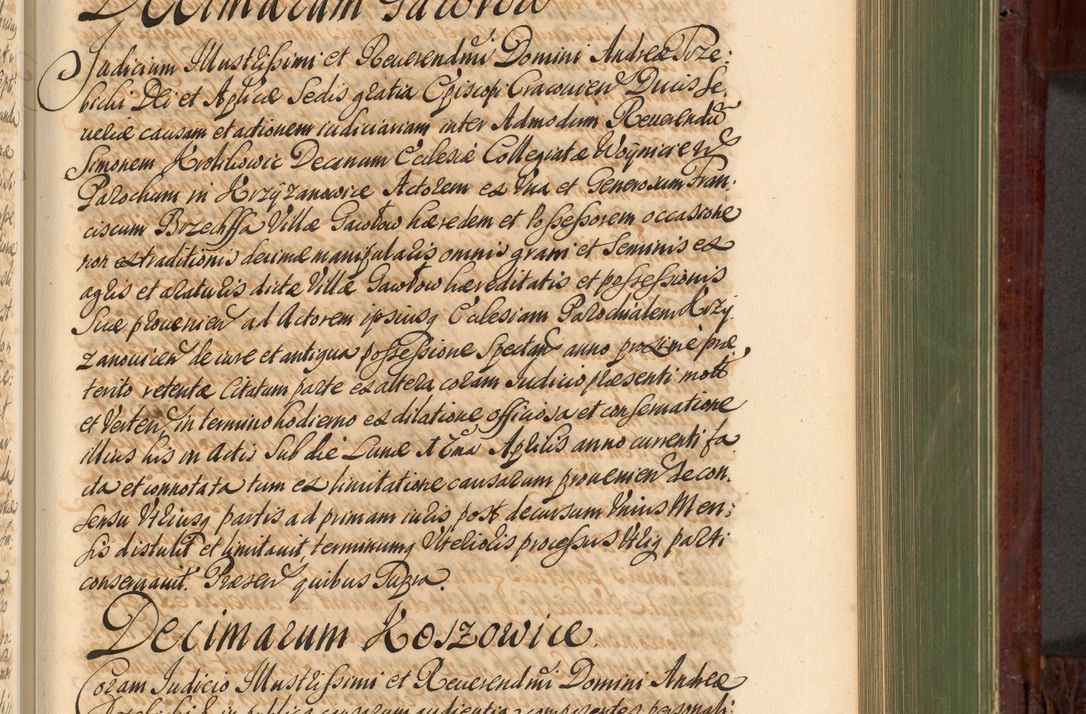 Decimarum Gawłow
Judicium Illustrissimi et Reuerendmi Domini Andreæ Trze:
bicki Dei et Aplicæ Sedis gratia Episcopi Cracouien Ducis Se,
ueriæ causam et actionem iudiciariam inter Admodum Reuerendū
Simonem Krolikowic Decanum Ecclesiæ Collegiatæ Woynicien
Parochum in Krzyzanowice Actorem ex Vna et Generosum Fran,
ciscum Brzechffa Villæ Gawłow hæredem et Possessorem occasione
non extraditionis decimæ manipularis omnis grani et Seminis ex
agris et araturis dictæ Villæ Gawłow hæreditatis et possessionis
Suæ prouenien ad Actorem ipsiusq Ecclesiam Parochialem Krzy,
zanouicen de iure et antiqua possessione Spectan anno proxime præ
terito retentæ Citatum parte ex altera coram Judicio præsenti mott
et Verten in termino hodierno ex dilatione officiosa et conseruatione
illius his in Actis Sub die Lunæ Aprilis anno currenti fa
cta et connotata tum ex limitatione causarum prouenien de con,
sensu Vtriusq partis ad primam iuris post decursum Vnius Men,
sis distulit et limitauit terminumq Vlterioris processus Vtriq parti
conseruauit. Præsen quibus Supra.
Decimarum Koszowice.
Coram Judicio Illustrissimi et Reuerendmi Domini Andreæ
Trzebicki in publica causarum audientia comparentes personali: